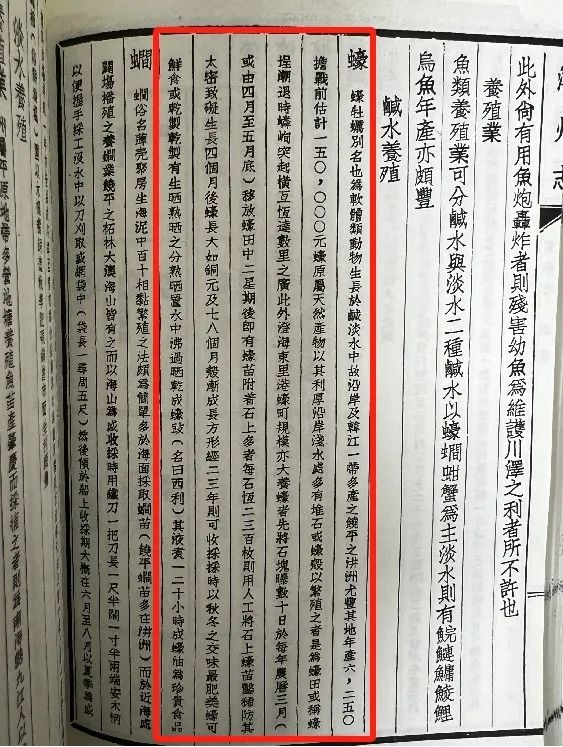 潮州志
此外尙有用魚炮轟炸者則殘害幼魚爲維護川澤之利者所不許也
養殖業
魚類養殖業可分鹹水與淡水二種鹹水以蠔蜩蚶蟹爲主淡水則有鯇鰱鱅鯪鯉
烏魚年產亦頗豐
鹹水養殖
蠔 蠔牡蠣別名也爲軟體類動物生長於鹹淡水中故沿岸及韓江一帶多產之饒平之汫洲尤豐其地年產六，二五〇
擔戰前估計一五〇，〇〇〇元蠔原屬天然產物以其利厚沿岸淺水處多有堆石或蠔殼以繁殖之者是爲蠔田或稱蠔
埕潮退時嶙峋突起橫亙恆達數里之廣此外澄海東里港蠔町規模亦大養蠔者先將石塊曝數十日於每年農曆三月（
或由四月至五月底）移放蠔田中二星期後即有蠔苗附着石上多者每石恆二三百枚則用人工將石上蠔苗鑿稀防其
太密致礙生長四個月後蠔長大如銅元及七八個月殼漸成長方形經二三年則可收採採時以秋冬之交味最肥美蠔可
鮮食或乾製乾製有生晒熟晒之分熟晒置水中沸過晒乾成蠔豉（名曰西利）其液煮一二十小時成蠔油爲珍貴食品
蜩 蜩俗名薄壳聚房生海泥中百十相黏繁殖之法頗爲簡單多於海面採取蜩苗（饒平蜩苗多在汫洲）而於近海處
闢場播殖之養蜩業饒平之柘林大澳海山皆有之而以海山爲盛收採時用鐵刀一把刀長一尺半闊一寸半兩端安木柄
以便握手採工沒水中以刀刈取盛網袋中（袋長一尋周五尺）然後傾於船上收採期大概在六月至八月以夏季爲盛
淡水養殖